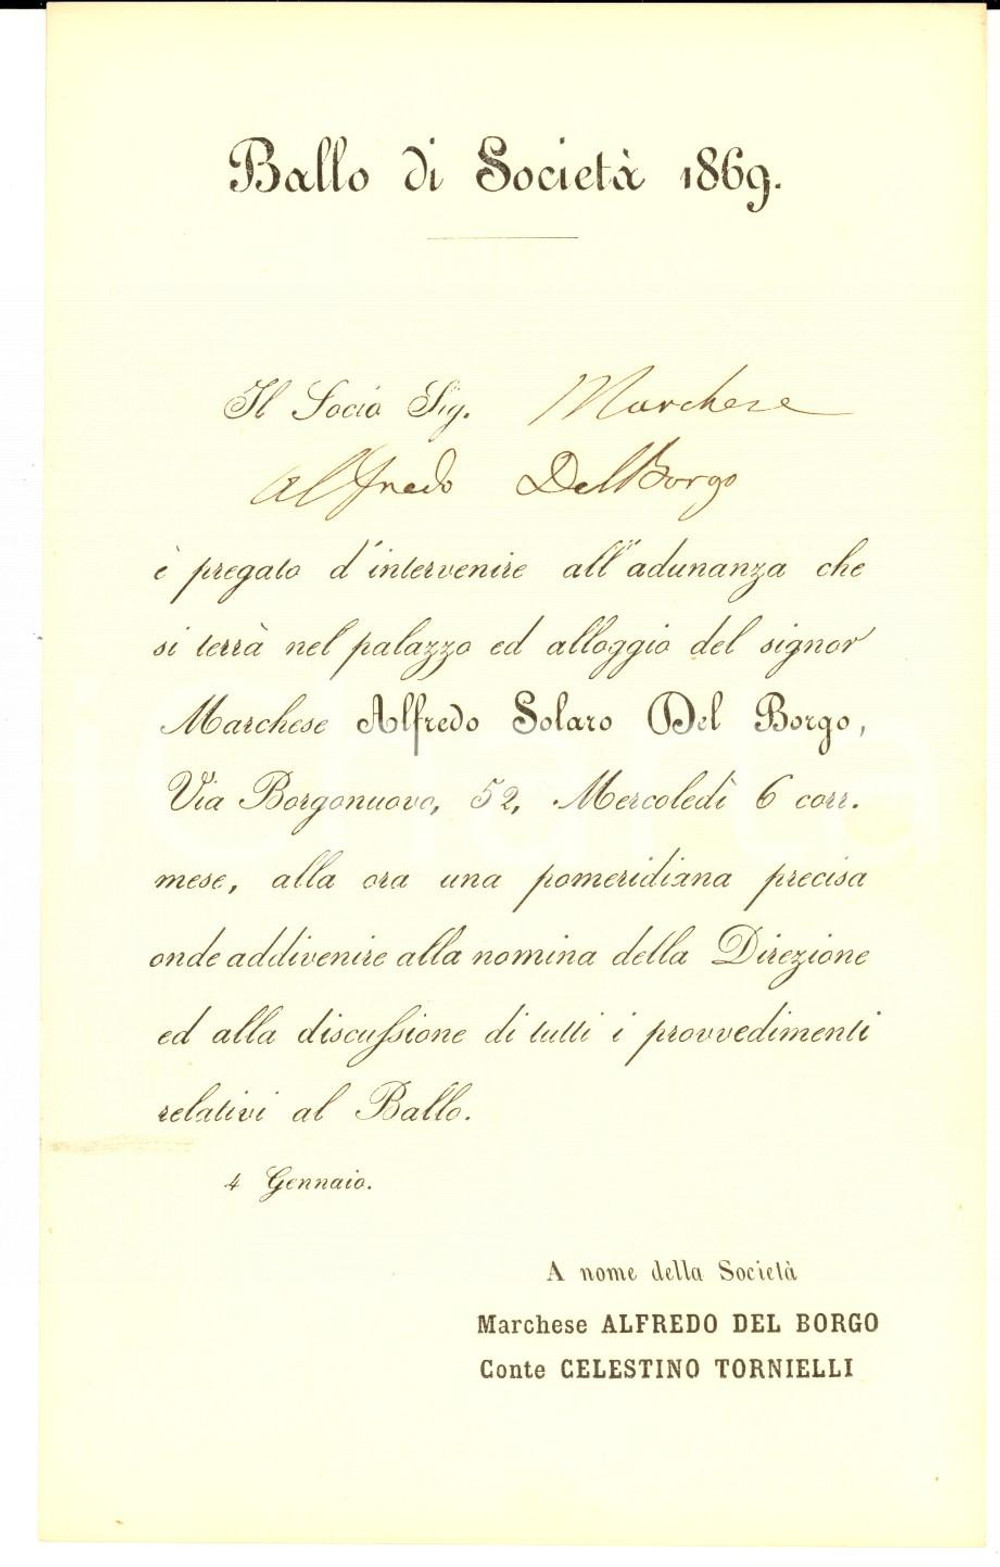 Ballo di Società 1869.
Il Socio Sig. Marchese
Alfredo Del Borgo
è pregato d'intervenire all'adunanza che
si terrà nel palazzo ed alloggio del signor
Marchese Alfredo Solaro Del Borgo,
Via Borgonuovo, 52, Mercoledì 6 corr.
mese, alla ora una pomeridiana precisa
onde addivenire alla nomina della Direzione
ed alla discussione di tutti i provvedimenti
relativi al Ballo.
4 Gennaio.
A nome della Società
Marchese ALFREDO DEL BORGO
Conte CELESTINO TORNIELLI